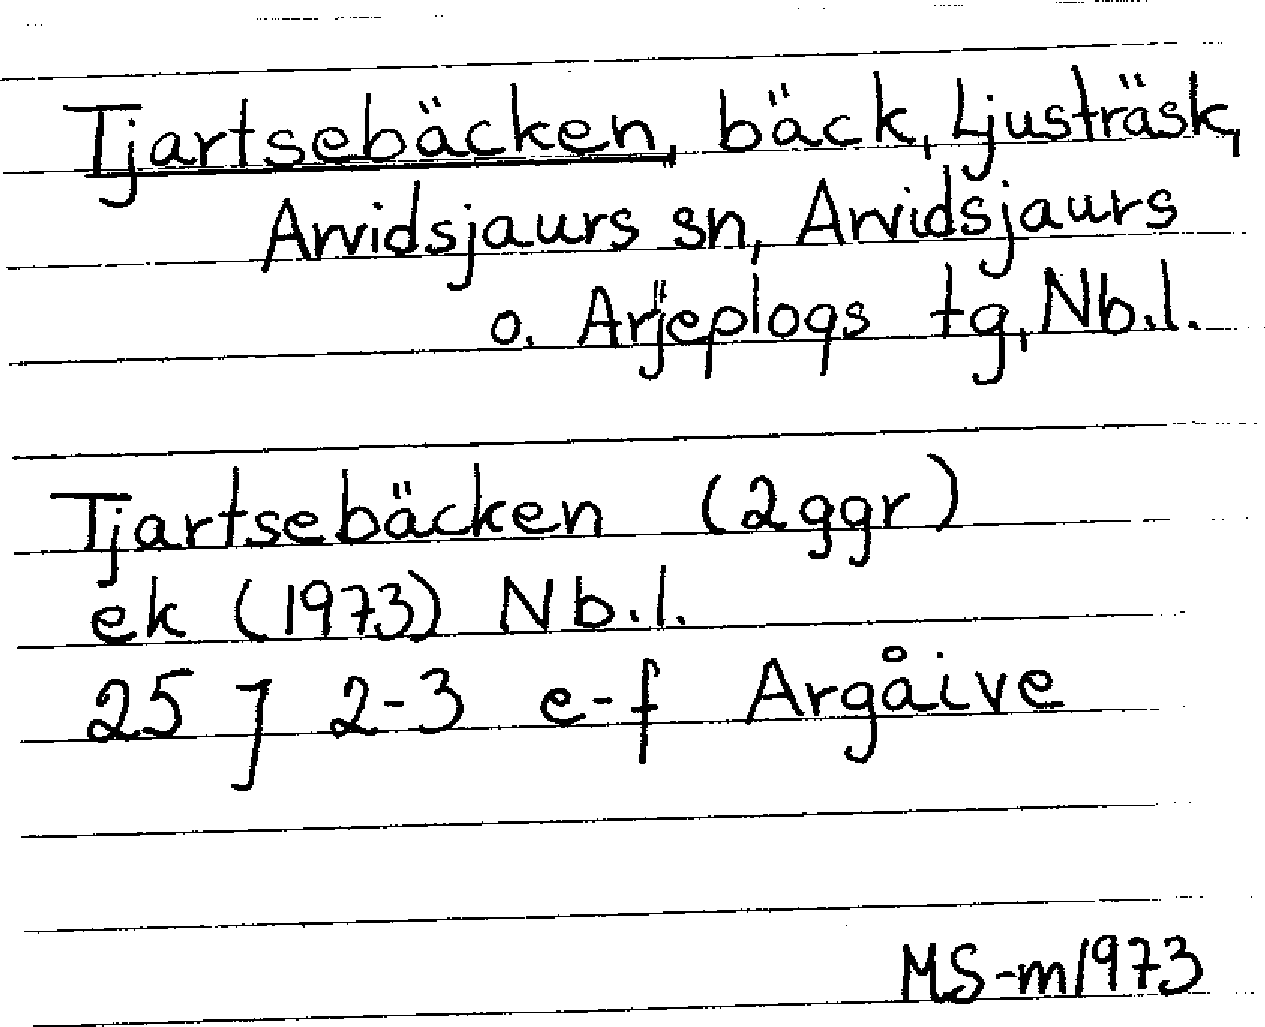 Tjartsebäcken, bäck, Ljusträsk,
Arvidsjaurs sn, Arvidsjaurs
o. Arjeplogs tg, Nb.l.
Tjartsebäcken (2ggr)
ek (1973) Nb.l.
25 J 2-3 e-f Argåive
MS-m1973